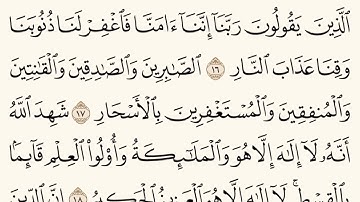 ٱلَّذِينَ يَقُولُونَ رَبَّنَآ إِنَّنَآ ءَامَنَّا فَٱغْفِرْ لَنَا ذُنُوبَنَا
وَقِنَا عَذَابَ ٱلنَّارِ ١٦ ٱلصَّـٰبِرِينَ وَٱلصَّـٰدِقِينَ وَٱلْقَـٰنِتِينَ
وَٱلْمُنفِقِينَ وَٱلْمُسْتَغْفِرِينَ بِٱلْأَسْحَارِ ١٧ شَهِدَ ٱللَّهُ
أَنَّهُۥ لَآ إِلَـٰهَ إِلَّا هُوَ وَٱلْمَلَـٰٓئِكَةُ وَأُو۟لُوا۟ ٱلْعِلْمِ قَآئِمًۢا
بِٱلْقِسْطِ ۚ لَآ إِلَـٰهَ إِلَّا هُوَ ٱلْعَزِيزُ ٱلْحَكِيمُ ١٨ إِنَّ ٱلدِّينَ